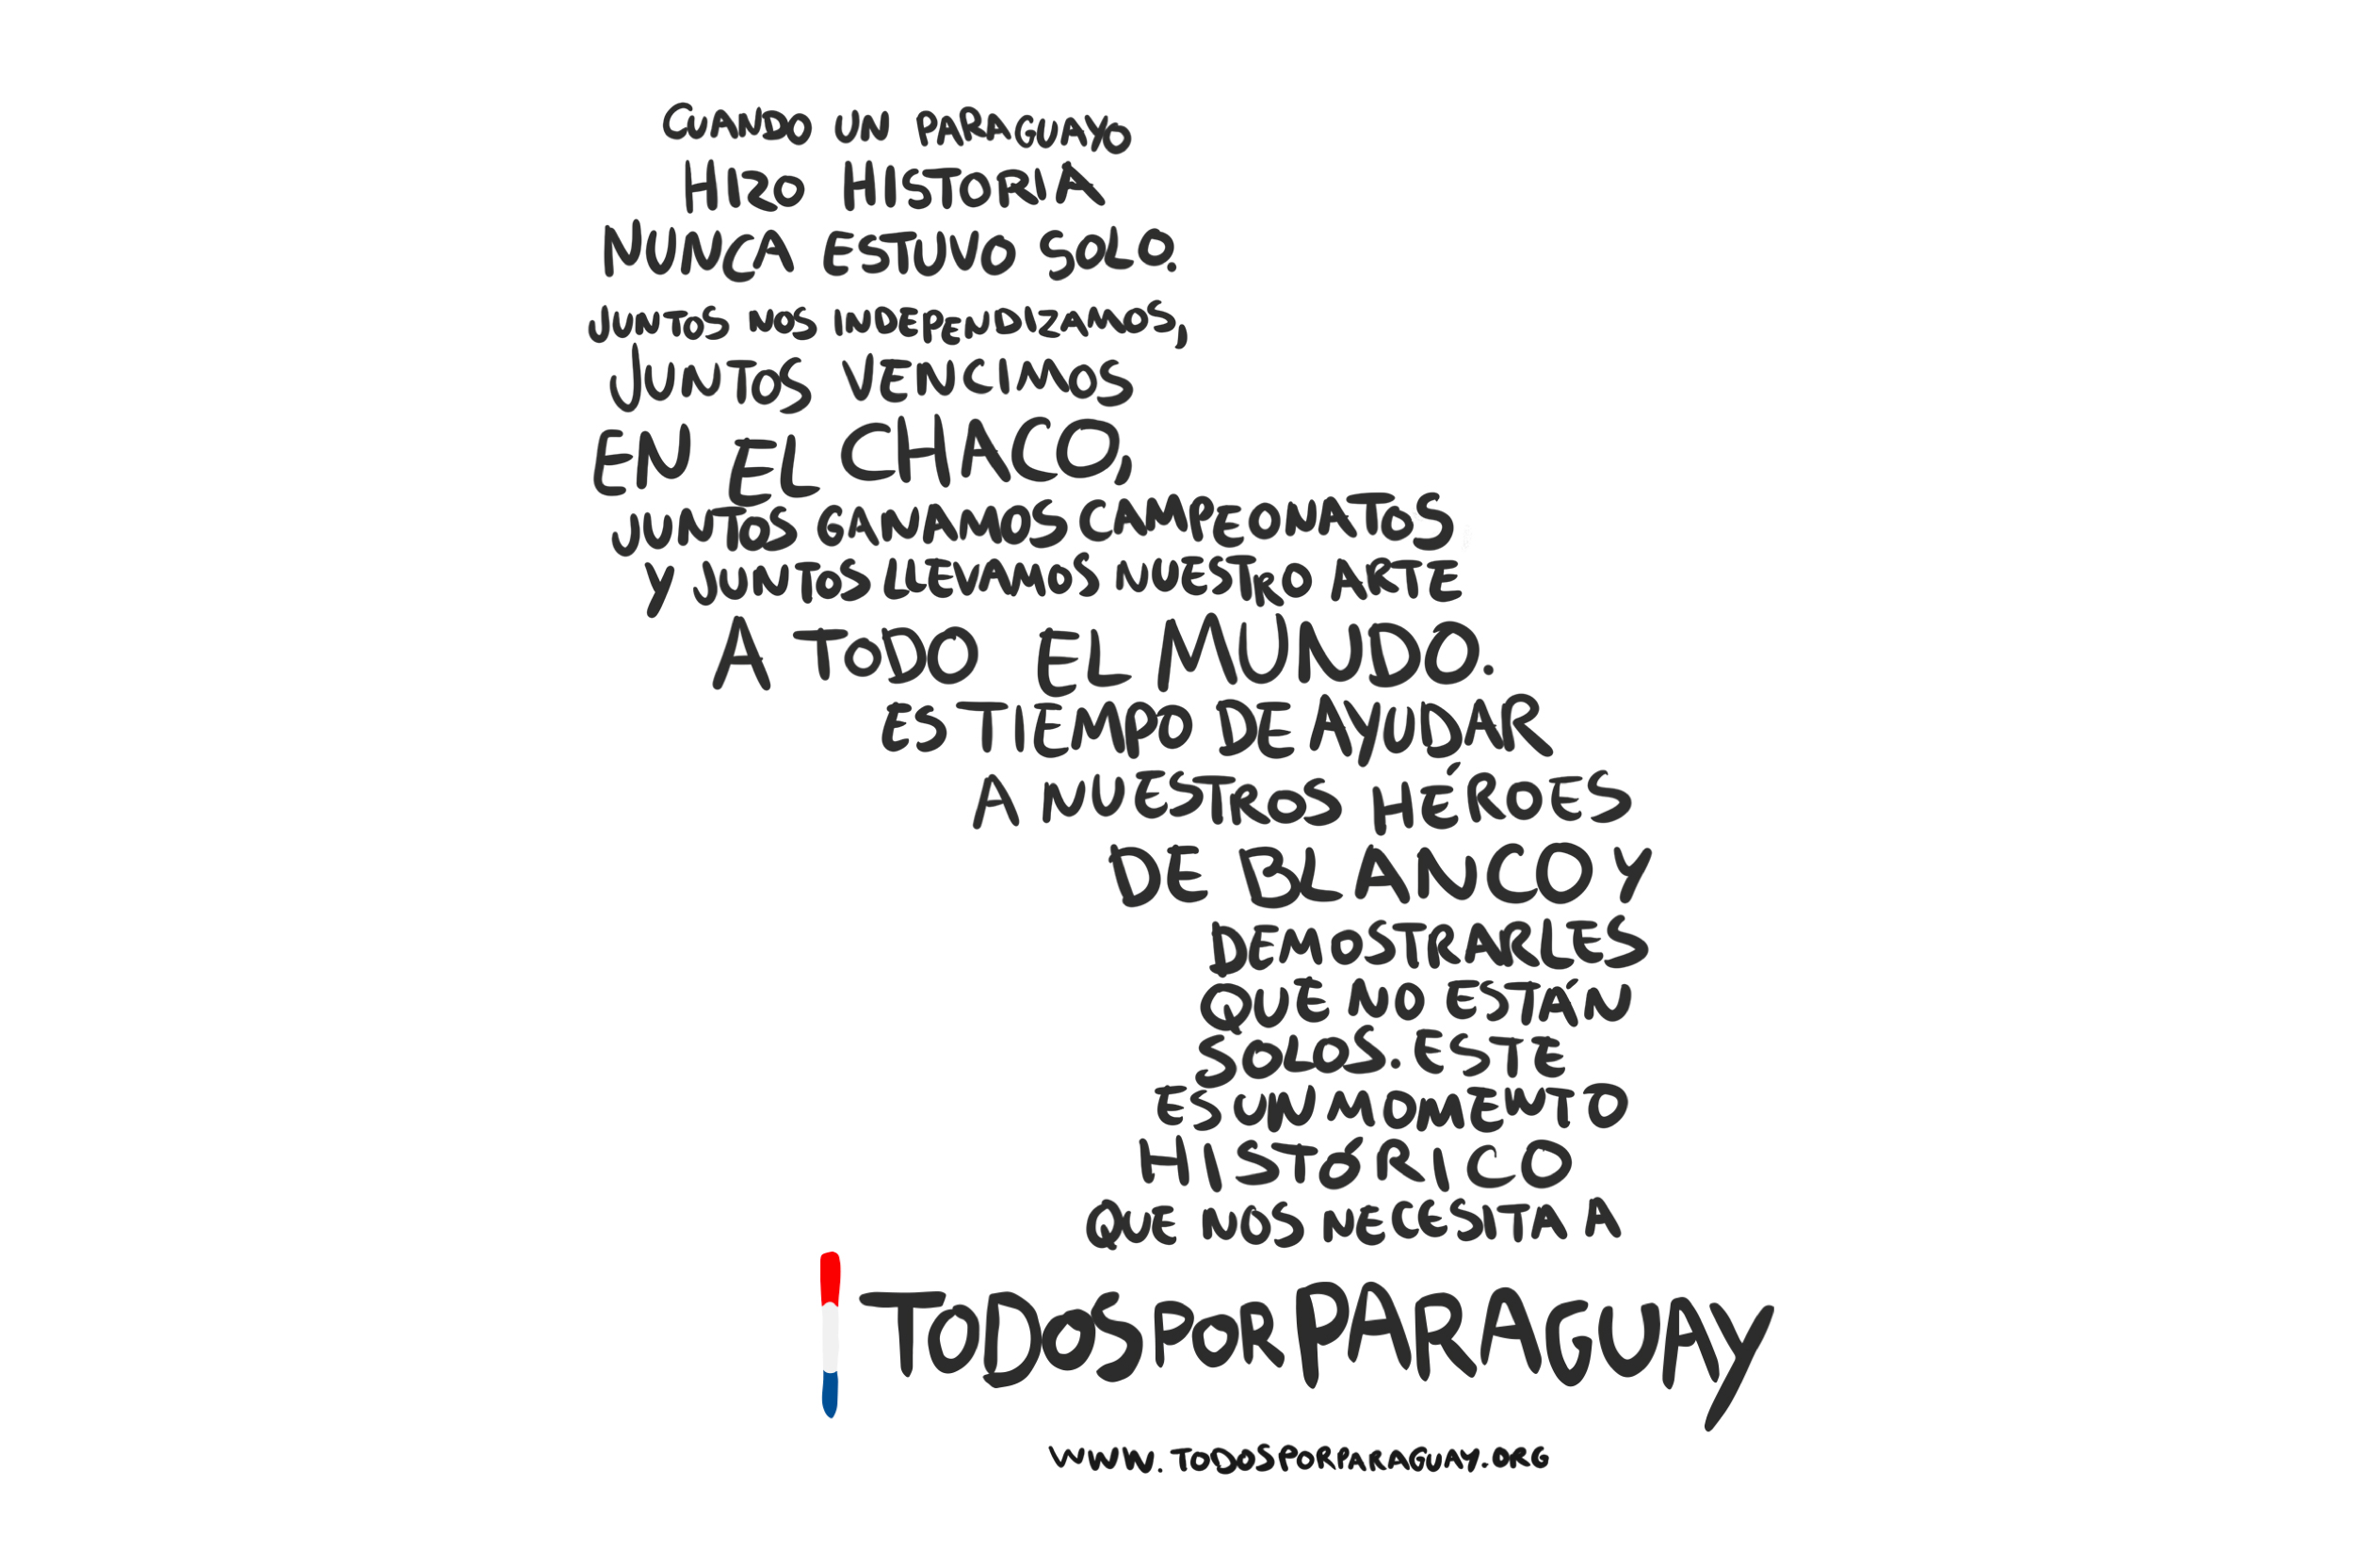 CUANDO UN PARAGUAYO
HIZO HISTORIA
NUNCA ESTUVO SOLO.
JUNTOS NOS INDEPENDIZAMOS,
JUNTOS VENCIMOS
EN EL CHACO,
JUNTOS GANAMOS CAMPEONATOS
Y JUNTOS LLEVAMOS NUESTRO ARTE
A TODO EL MUNDO.
ES TIEMPO DE AYUDAR
A NUESTROS HÉROES
DE BLANCO Y
DEMOSTRARLES
QUE NO ESTÁN
SOLOS. ESTE
ES UN MOMENTO
HISTÓRICO
QUE NOS NECESITA A
TODOS POR PARAGUAY
WWW.TODOSPORPARAGUAY.ORG